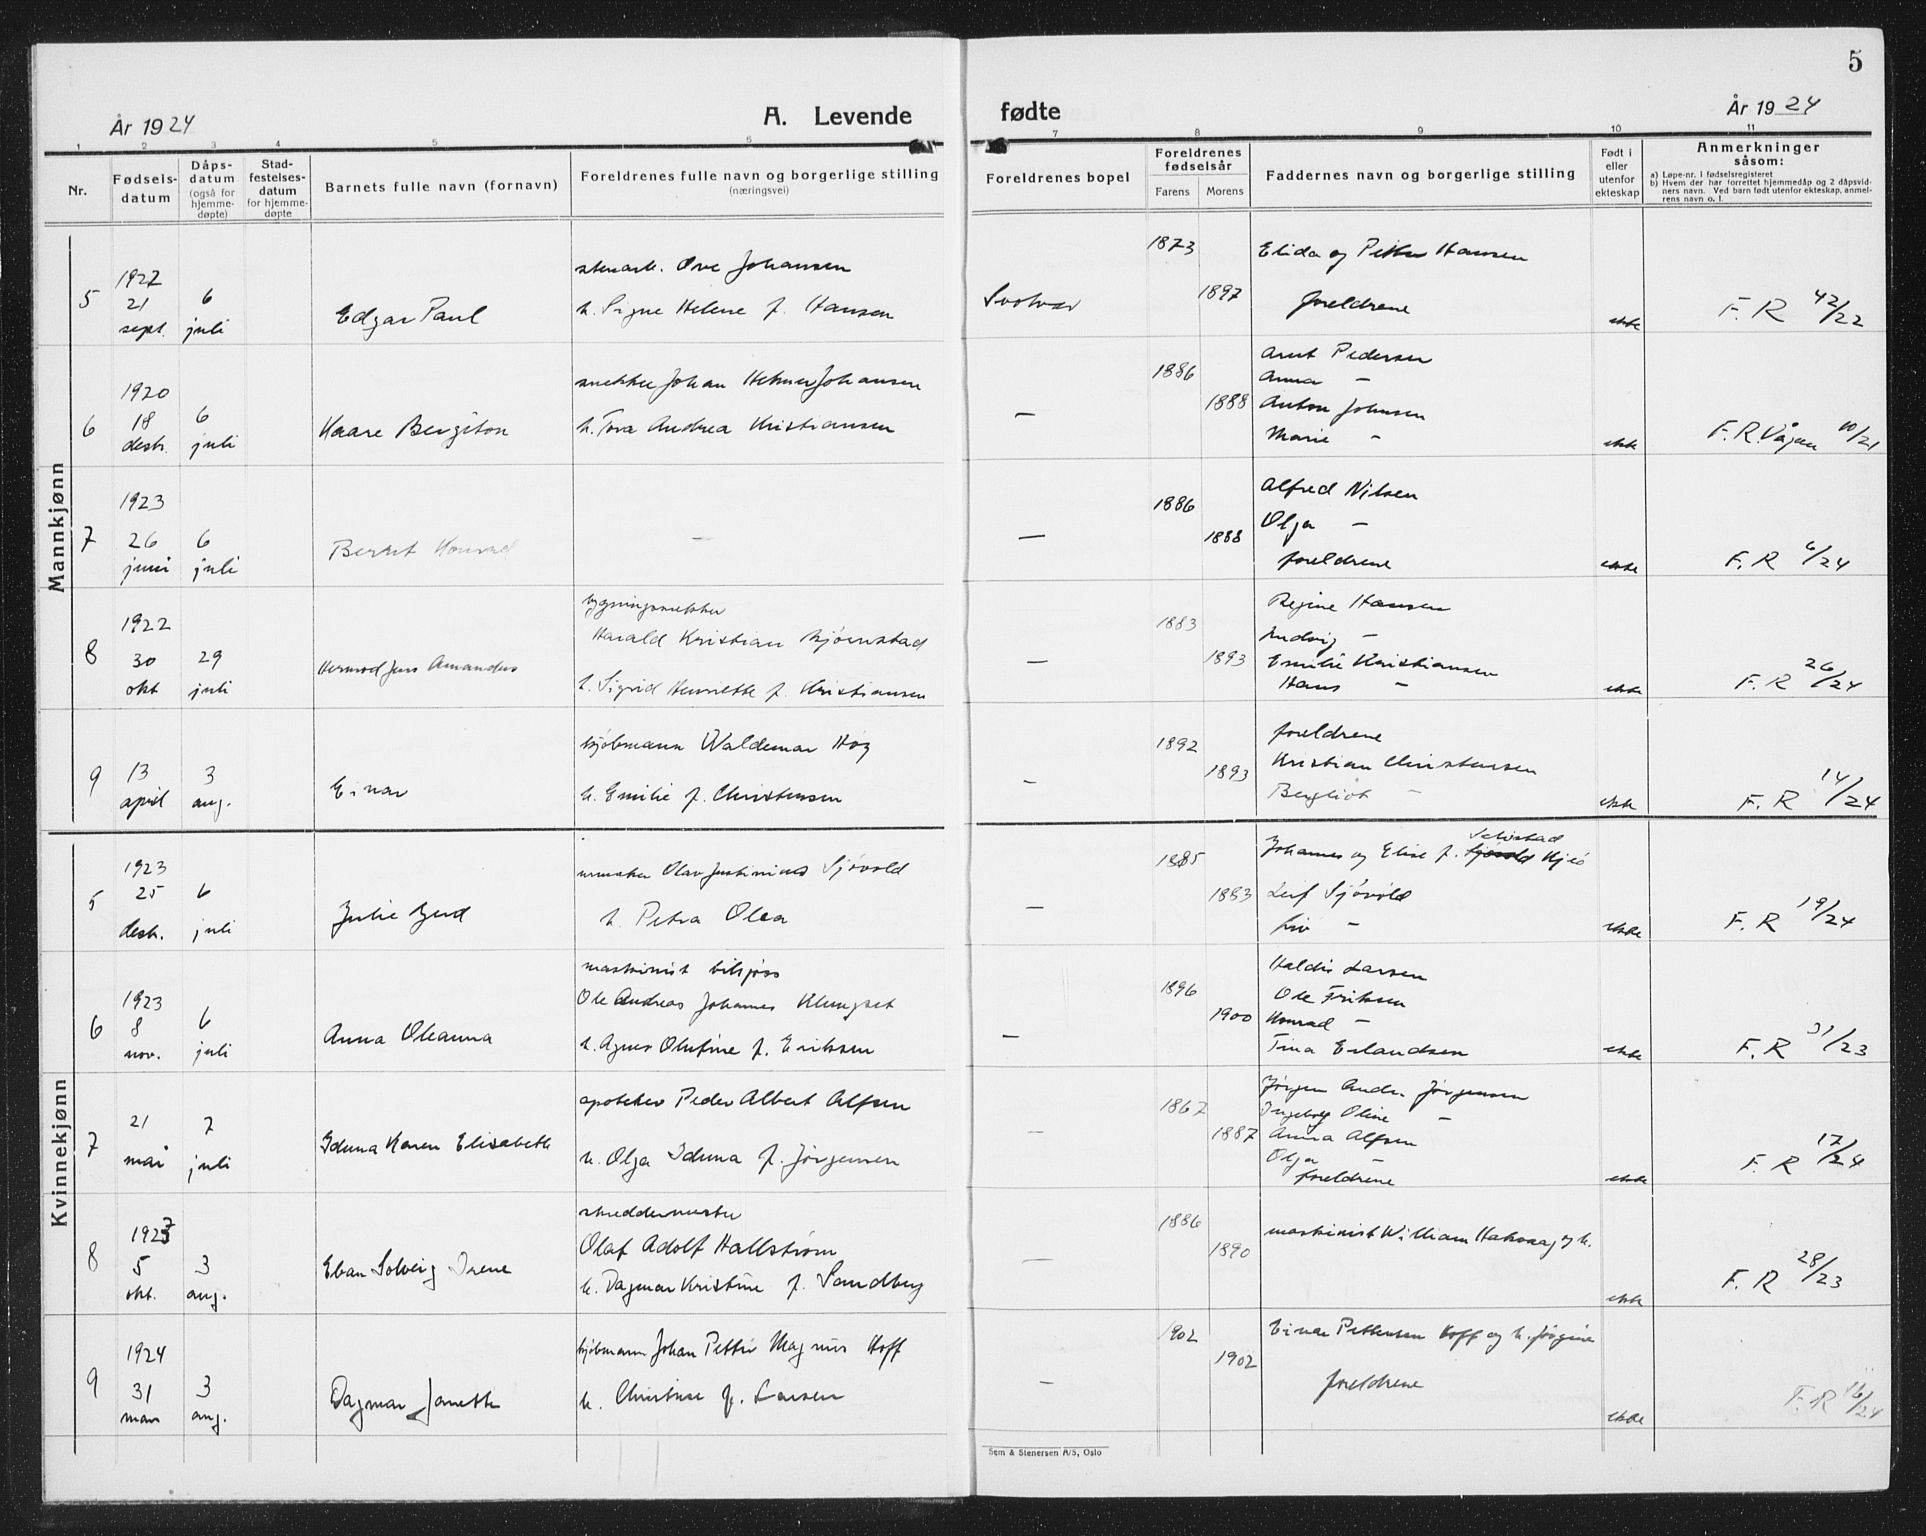 5
År 1924
A. Levende
fødte
År 1924
1 2 3 4 5 6 7 8 9 10 11
Nr.
Fødsels-
datum
Dåps-
datum
(også for
hjemme-
døpte)
Stad-
festelses-
datum
for hjemme-
døpte
Barnets fulle navn (fornavn)
Foreldrenes fulle navn og borgerlige stilling
(næringsvei)
Foreldrenes bopel
Foreldrenes
fødselsår
Farens Morens
Faddernes navn og borgerlige stilling
Født i
eller
utenfor
ekteskap
Anmerkninger
såsom:
a) Løpe-nr. i fødselsregisteret
b) Hvem der har forrettet hjemmedåp og 2 dåpsvid-
ners navn. Ved barn født utenfor ekteskap, anmel-
rens navn o. l.
Mannkjønn
5
1922
21
sept.
6
juli
Edgar Paul
stenarb. Ove Johansen
h. Signe Helene f. Hansen
Svolvær
1873
1897
Elida og Petter Hansen
foreldrene
ekte
F. R 42/22
6
1920
18
desb.
6
juli
Kaare Bergiton
snekker Johan Helmer Johansen
h. Tora Andrea Kristiansen
—
1886
1888
Arnt Pedersen
Anna —
Anton Johnsen
Marie —
ekte
F. R. Vågan 10/21
7
1923
26
juni
6
juli
Bernt Konrad
—
—
1886
1888
Alfred Nilsen
Olga —
foreldrene
ekte
F. R 6/24
8
1922
30
okt
29
juli
Hermod Jens Amandus
bygningssnekker
Harald Kristian Bjørnstad
h. Sigrid Henriette f. Kristiansen
—
1883
1893
Regine Hansen
Ludvig —
Emilie Kristiansen
Hans —
ekte
F. R 26/24
9
13
april
3
aug.
Einar
kjøbmann Waldemar Høg
h. Emilie f. Christensen
—
1892
1893
foreldrene
Kristian Christensen
Bergliot —
ekte
F. R 14/24
Kvinnekjønn
5
1923
25
desb.
6
juli
Julie Gerd
urmaker Olav Justinius Sjøvold
h. Petra Olea
—
1885
1883
Johannes og Elise f.
Leif Sjøvold
Liv —
ekte
F. R 19/24
6
1923
8
nov.
6
juli
Anna Oleanna
maskinist
Ole Andreas Johannes Klungset
h. Agnes Olufine f. Eriksen
—
1896
1900
Haldis Larsen
Ole Eriksen
Konrad —
Tina Erlandsen
ekte
F. R 31/23
7
21
mai
7
juli
Iduna Karen Elisabeth
apoteker Peder Albert Alfsen
h. Olga Iduna f. Jørgensen
—
1867
1887
Jørgen Andr. Jørgensen
Ingeborg Oline —
Anna Alfsen
Olga —
foreldrene
ekte
F. R 17/24
8
1923
5
okt.
3
aug.
Eban Solveig Irene
skreddermester
Olaf Adolf Hallstrøm
h. Dagmar Kristine f. Sandberg
—
1886
1890
maskinist William Hakvaag og h.
ekte
F. R 28/23
9
1924
31
mars
3
aug.
Dagmar Janette
kjøbmann Johan Petter Magnus Hoff
h. Christine f. Larsen
—
1902
1902
Einar Pettersen Hoff og h. Jørgine
foreldrene
ekte
F. R 16/24
Sem & Stenersen A/S, Oslo